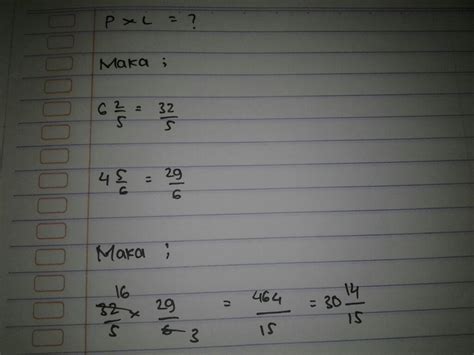 P x L = ?
Maka ;
6 2/5 = 32/5
4 5/6 = 29/6
Maka ;
16
32/5 x 29/6 3 = 464/15 = 30 14/15